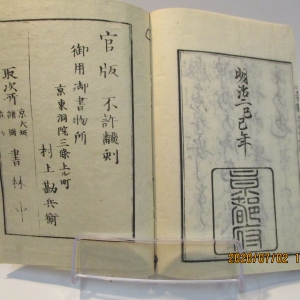 明治二己巳年
京都府
官版 不許飜刻
御用御書物所
京東洞院三條上ル町
村上勘兵衛
取次所
京大坂
諸國
書林中
2020/07/02